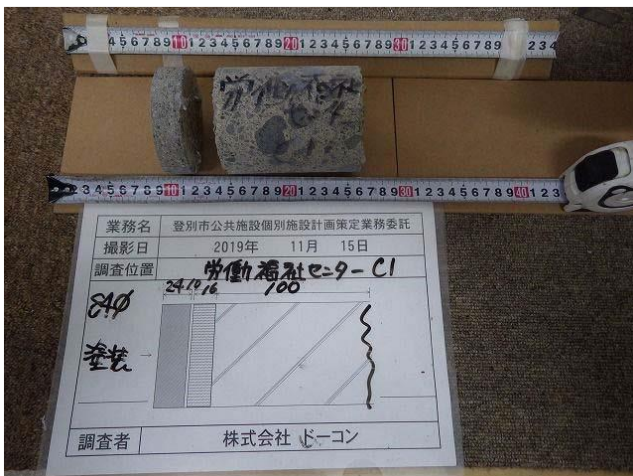 4 5 6 7 8 9 10 1 2 3 4 5 6 7 8 9 20 1 2 3 4 5 6 7 8 9 30 1 2 3 4 5 6 7 8 9 1 2 3 4
労働福祉
センター
C1
2 3 4 5 6 7 8 9 10 1 2 3 4 5 6 7 8 9 20 1 2 3 4 5 6 7 8 9 30 1 2 3 4 5 6 7 8 9 40 1 2 3
業務名 登別市公共施設個別施設計画策定業務委託
撮影日 2019年 11月 15日
調査位置 労働福祉センターC1
24 10 16 100
84φ
塗装
調査者 株式会社 ドーコン